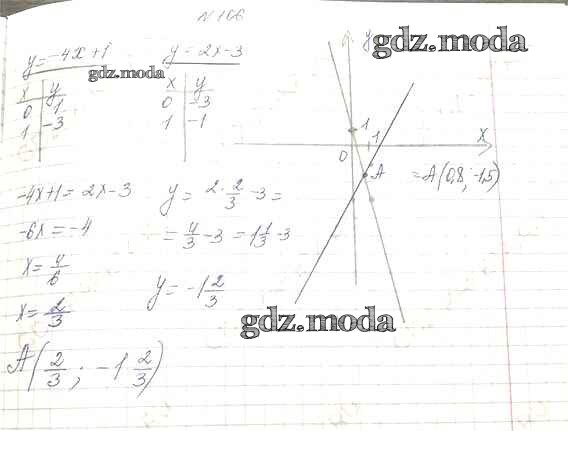 № 166
y = -4x+1
x | y
0 | 1
1 | -3
y = 2x-3
x | y
0 | -3
1 | -1
-4x+1 = 2x-3
-6x = -4
x = 4/6
x = 2/3
y = 2·2/3-3=
= 4/3-3 = 1 1/3-3
y = -1 2/3
A(2/3; -1 2/3)
y
1
1
x
0
A
= A(0,8; -1,5)
gdz.moda
gdz.moda
gdz.moda